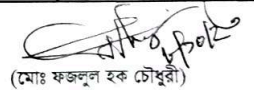 (মোঃ ফজলুল হক চৌধুরী)